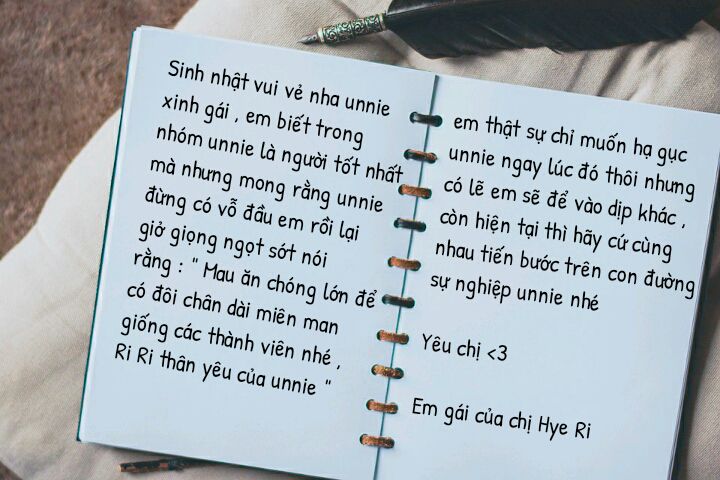 Sinh nhật vui vẻ nha unnie
xinh gái , em biết trong
nhóm unnie là người tốt nhất
mà nhưng mong rằng unnie
đừng có vỗ đầu em rồi lại
giở giọng ngọt sớt nói
rằng : " Mau ăn chóng lớn để
có đôi chân dài miên man
giống các thành viên nhé ,
Ri Ri thân yêu của unnie "
em thật sự chỉ muốn hạ gục
unnie ngay lúc đó thôi nhưng
có lẽ em sẽ để vào dịp khác ,
còn hiện tại thì hãy cứ cùng
nhau tiến bước trên con đường
sự nghiệp unnie nhé
Yêu chị <3
Em gái của chị Hye Ri